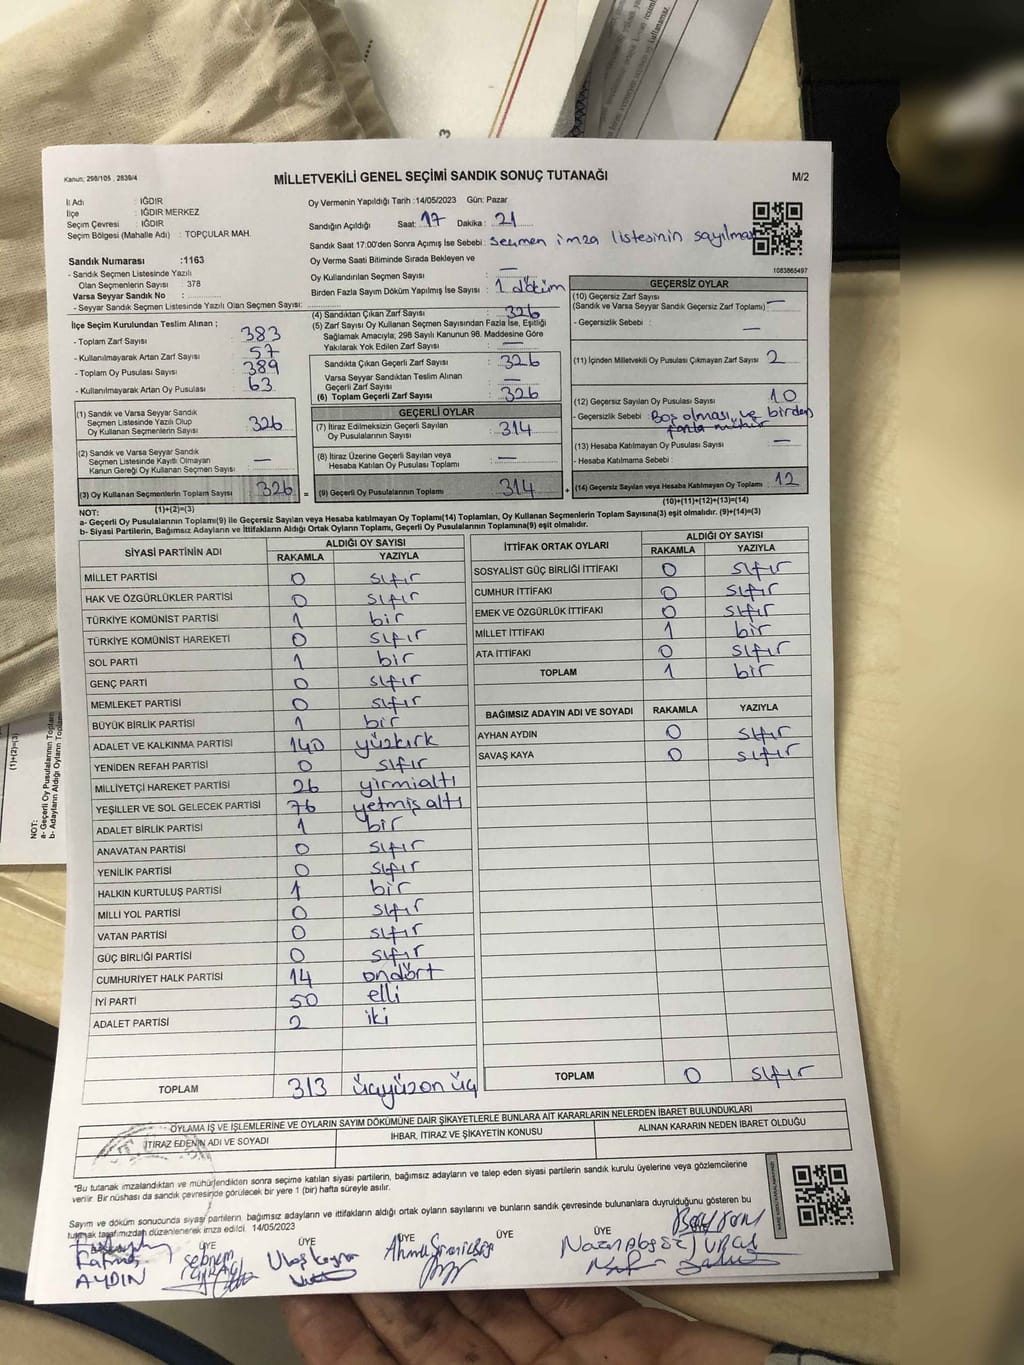 Kanun; 298/105 , 2839/4
MİLLETVEKİLİ GENEL SEÇİMİ SANDIK SONUÇ TUTANAĞI
M/2
İl Adı : IĞDIR
İlçe : IĞDIR MERKEZ
Seçim Çevresi : IĞDIR
Seçim Bölgesi (Mahalle Adı) : TOPÇULAR MAH.
Oy Vermenin Yapıldığı Tarih :14/05/2023 Gün: Pazar
Sandığın Açıldığı Saat: 17 Dakika : 21
Sandık Saat 17:00'den Sonra Açımış İse Sebebi : Seçmen imza listesinin sayılması
Oy Verme Saati Bitiminde Sırada Bekleyen ve
Oy Kullandırılan Seçmen Sayısı : —
Birden Fazla Sayım Döküm Yapılmış İse Sayısı : 1 döküm
1083865497
Sandık Numarası :1163
- Sandık Seçmen Listesinde Yazılı
Olan Seçmenlerin Sayısı : 378
Varsa Seyyar Sandık No :
- Seyyar Sandık Seçmen Listesinde Yazılı Olan Seçmen Sayısı:
İlçe Seçim Kurulundan Teslim Alınan ;
- Toplam Zarf Sayısı : 383
- Kullanılmayarak Artan Zarf Sayısı : 57
- Toplam Oy Pusulası Sayısı : 389
- Kullanılmayarak Artan Oy Pusulası : 63
(1) Sandık ve Varsa Seyyar Sandık
Seçmen Listesinde Yazılı Olup
Oy Kullanan Seçmenlerin Sayısı : 326
(2) Sandık ve Varsa Seyyar Sandık
Seçmen Listesinde Kayıtlı Olmayan
Kanun Gereği Oy Kullanan Seçmen Sayısı : —
(3) Oy Kullanan Seçmenlerin Toplam Sayısı : 326 =
(1)+(2)=(3)
(4) Sandıktan Çıkan Zarf Sayısı : 326
(5) Zarf Sayısı Oy Kullanan Seçmen Sayısından Fazla İse, Eşitliği
Sağlamak Amacıyla; 298 Sayılı Kanunun 98. Maddesine Göre
Yakılarak Yok Edilen Zarf Sayısı : —
Sandıkta Çıkan Geçerli Zarf Sayısı : 326
Varsa Seyyar Sandıktan Teslim Alınan
Geçerli Zarf Sayısı : —
(6) Toplam Geçerli Zarf Sayısı : 326
GEÇERLİ OYLAR
(7) İtiraz Edilmeksizin Geçerli Sayılan
Oy Pusulalarının Sayısı : 314
(8) İtiraz Üzerine Geçerli Sayılan veya
Hesaba Katılan Oy Pusulası Toplamı : —
(9) Geçerli Oy Pusulalarının Toplamı : 314 +
GEÇERSİZ OYLAR
(10) Geçersiz Zarf Sayısı
(Sandık ve Varsa Seyyar Sandık Geçersiz Zarf Toplamı) : —
- Geçersizlik Sebebi : —
(11) İçinden Milletvekili Oy Pusulası Çıkmayan Zarf Sayısı : 2
(12) Geçersiz Sayılan Oy Pusulası Sayısı : 10
- Geçersizlik Sebebi : Boş olması, ve birden
fazla mühür
(13) Hesaba Katılmayan Oy Pusulası Sayısı : —
- Hesaba Katılmama Sebebi :
(14) Geçersiz Sayılan veya Hesaba Katılmayan Oy Toplamı : 12
(10)+(11)+(12)+(13)=(14)
NOT:
a- Geçerli Oy Pusulalarının Toplamı(9) ile Geçersiz Sayılan veya Hesaba katılmayan Oy Toplamı(14) Toplamları, Oy Kullanan Seçmenlerin Toplam Sayısına(3) eşit olmalıdır. (9)+(14)=(3)
b- Siyasi Partilerin, Bağımsız Adayların ve İttifakların Aldığı Ortak Oyların Toplamı, Geçerli Oy Pusulalarının Toplamına(9) eşit olmalıdır.
SİYASİ PARTİNİN ADI ALDIĞI OY SAYISI
RAKAMLA YAZIYLA
MİLLET PARTİSİ 0 sıfır
HAK VE ÖZGÜRLÜKLER PARTİSİ 0 sıfır
TÜRKİYE KOMÜNİST PARTİSİ 1 bir
TÜRKİYE KOMÜNİST HAREKETİ 0 sıfır
SOL PARTİ 1 bir
GENÇ PARTİ 0 sıfır
MEMLEKET PARTİSİ 0 sıfır
BÜYÜK BİRLİK PARTİSİ 1 bir
ADALET VE KALKINMA PARTİSİ 140 yüzkırk
YENİDEN REFAH PARTİSİ 0 sıfır
MİLLİYETÇİ HAREKET PARTİSİ 26 yirmialtı
YEŞİLLER VE SOL GELECEK PARTİSİ 76 yetmiş altı
ADALET BİRLİK PARTİSİ 1 bir
ANAVATAN PARTİSİ 0 sıfır
YENİLİK PARTİSİ 0 sıfır
HALKIN KURTULUŞ PARTİSİ 1 bir
MİLLİ YOL PARTİSİ 0 sıfır
VATAN PARTİSİ 0 sıfır
GÜÇ BİRLİĞİ PARTİSİ 0 sıfır
CUMHURİYET HALK PARTİSİ 14 ondört
İYİ PARTİ 50 elli
ADALET PARTİSİ 2 iki
TOPLAM 313 üçyüzon üç
İTTİFAK ORTAK OYLARI ALDIĞI OY SAYISI
RAKAMLA YAZIYLA
SOSYALİST GÜÇ BİRLİĞİ İTTİFAKI 0 sıfır
CUMHUR İTTİFAKI 0 sıfır
EMEK VE ÖZGÜRLÜK İTTİFAKI 0 sıfır
MİLLET İTTİFAKI 1 bir
ATA İTTİFAKI 0 sıfır
TOPLAM 1 bir
BAĞIMSIZ ADAYIN ADI VE SOYADI RAKAMLA YAZIYLA
AYHAN AYDIN 0 sıfır
SAVAŞ KAYA 0 sıfır
TOPLAM 0 sıfır
OYLAMA İŞ VE İŞLEMLERİNE VE OYLARIN SAYIM DÖKÜMÜNE DAİR ŞİKAYETLERLE BUNLARA AİT KARARLARIN NELERDEN İBARET BULUNDUKLARI
İTİRAZ EDENİN ADI VE SOYADI İHBAR, İTİRAZ VE ŞİKAYETİN KONUSU ALINAN KARARIN NEDEN İBARET OLDUĞU
*Bu tutanak imzalandıktan ve mühürlendikten sonra seçime katılan siyasi partilerin, bağımsız adayların ve talep eden siyasi partilerin sandık kurulu üyelerine veya gözlemcilerine
verilir. Bir nüshası da sandık çevresinde görülecek bir yere 1 (bir) hafta süreyle asılır.
Sayım ve döküm sonucunda siyasi partilerin, bağımsız adayların ve ittifakların aldığı ortak oyların sayılarını ve bunların sandık çevresinde bulunanlara duyrulduğunu gösteren bu
tutanak tarafımızdan düzenlenerek imza edildi. 14/05/2023
ÜYE ÜYE ÜYE ÜYE
AYDIN Şebnem Ulaş
NOT:
a- Geçerli Oy Pusulalarının Toplam
b- Siyasi Partilerin, Bağımsız
(1)+(2)=(3)